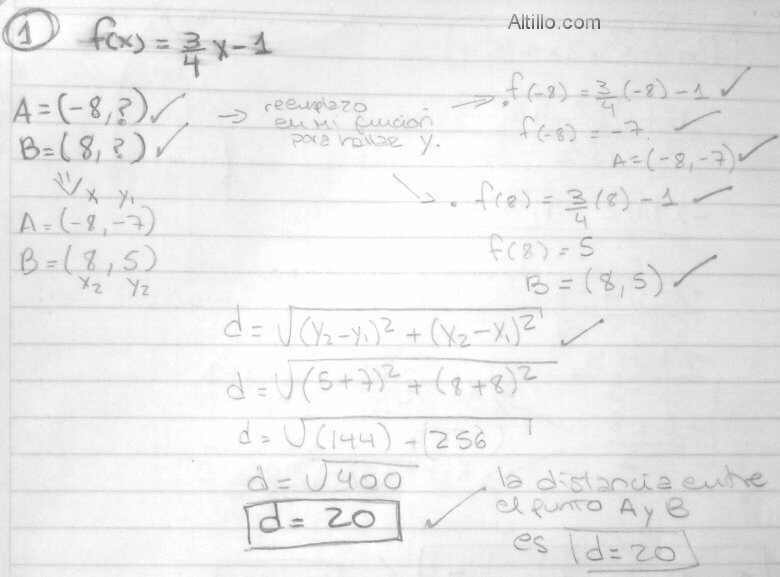 Altillo.com
1 f(x) = 3/4 x - 1
A = (-8, ?) ✓
B = (8, ?) ✓
→ reemplazo
en mi función
para hallar y.
f(-8) = 3/4 (-8) - 1 ✓
f(-8) = -7. ✓
A = (-8, -7) ✓
f(8) = 3/4 (8) - 1 ✓
f(8) = 5
B = (8, 5) ✓
x₁ y₁
A = (-8, -7)
B = (8, 5)
x₂ y₂
d = √(y₂-y₁)² + (x₂-x₁)² ✓
d = √(5+7)² + (8+8)²
d = √(144) + (256)
d = √400
d = 20 ✓
la distancia entre
el punto A y B
es d = 20